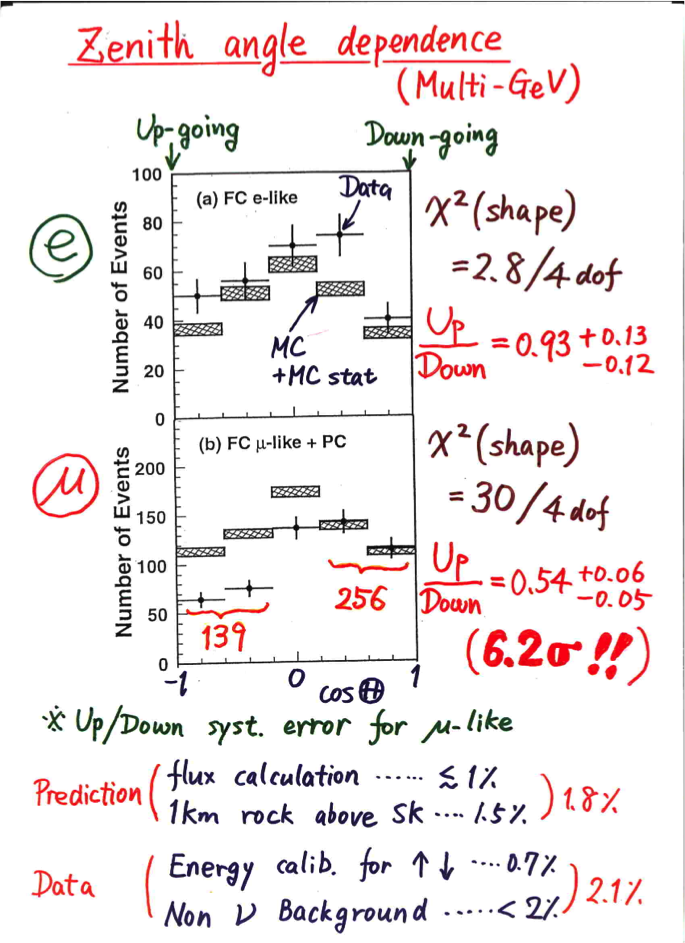 Zenith angle dependence
(Multi-GeV)
Up-going
Down-going
e
100
80
60
40
20
0
Number of Events
(a) FC e-like
Data
MC
+MC stat
χ² (shape)
= 2.8 / 4 dof
Up/Down = 0.93 +0.13 −0.12
μ
200
150
100
50
0
Number of Events
(b) FC μ-like + PC
139
256
-1 0 1
cos Θ
χ² (shape)
= 30 / 4 dof
Up/Down = 0.54 +0.06 −0.05
(6.2σ !!)
※ Up/Down syst. error for μ-like
Prediction ( flux calculation ...... ≲ 1%
1km rock above SK .... 1.5% ) 1.8%
Data ( Energy calib. for ↑ ↓ .... 0.7%
Non ν Background ..... < 2% ) 2.1%